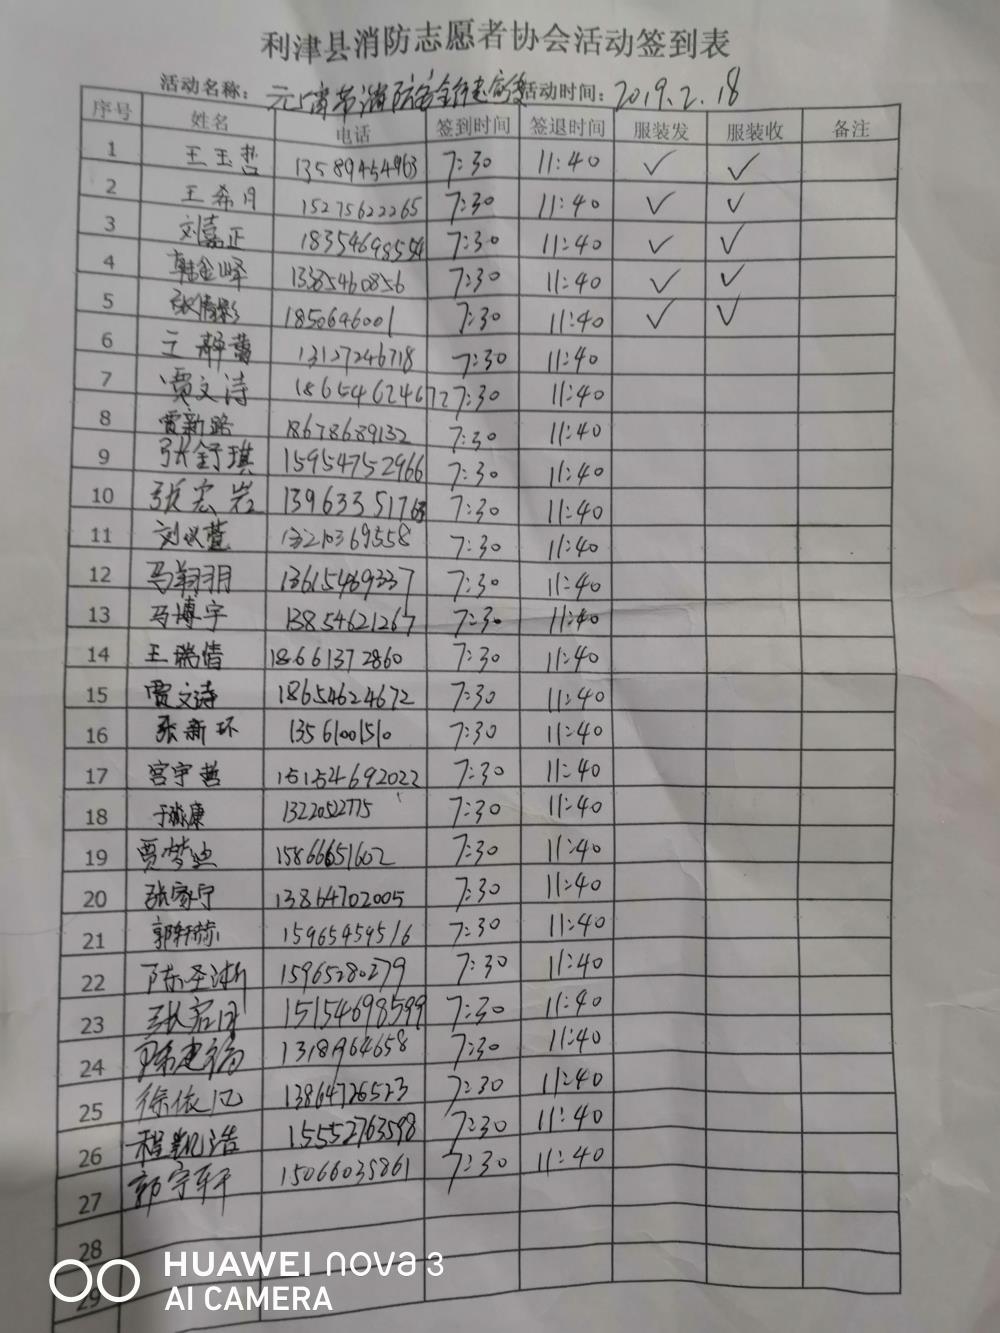 利津县消防志愿者协会活动签到表
活动名称： 元宵节消防安全 活动时间：2019.2.18
序号 姓名 电话 签到时间 签退时间 服装发 服装收 备注
1 王玉哲 13589454963 7:30 11:40 ✓ ✓
2 王希月 15275622265 7:30 11:40 ✓ ✓
3 刘嘉正 18354698554 7:30 11:40 ✓ ✓
4 韩金峄 13385460856 7:30 11:40 ✓ ✓
5 张倩影 1850646001 7:30 11:40 ✓ ✓
6 王静蕾 13127246718 7:30 11:40
7 贾文诗 18654624672 7:30 11:40
8 贾新路 18678689132 7:30 11:40
9 张舒琪 15954752966 7:30 11:40
10 张宏岩 13963351763 7:30 11:40
11 刘议萱 13210369558 7:30 11:40
12 马翔羽 13615469337 7:30 11:40
13 马博宇 13854621267 7:30 11:40
14 王瑞倩 18661372860 7:30 11:40
15 贾文诗 18654624672 7:30 11:40
16 张新环 13561001510 7:30 11:40
17 宫宇哲 15154692022 7:30 11:40
18 于淼康 1322052775 7:30 11:40
19 贾梦迪 15866651602 7:30 11:40
20 张家宁 13864702005 7:30 11:40
21 郭轩赫 15965459516 7:30 11:40
22 陈圣淅 15965280279 7:30 11:40
23 张君 15154698599 7:30 11:40
24 陈建福 1318964658 7:30 11:40
25 徐依凡 13864726523 7:30 11:40
26 程凯浩 15552763598 7:30 11:40
27 郭宇轩 15066035861 7:30 11:40
28
29
HUAWEI nova 3
AI CAMERA